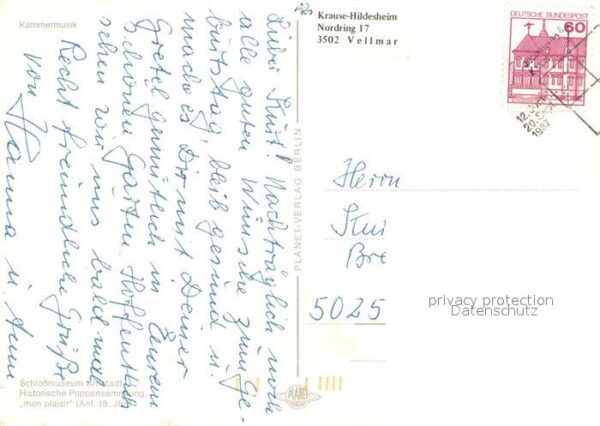 Kammermusik
Lieber Kurt! Nachträglich noch
alle guten Wünsche zum Ge-
burtstag, bleib gesund u.
mache es Dir mit Deiner
Gretel gemütlich in Eurem
schönen Garten. Hoffentlich
sehen wir uns bald mal
Recht freundliche Grüße
von Hanna u.
Schloßmuseum Arnstadt
Historische Puppensammlung
„mon plaisir" (Anf. 18. Jh.)
PLANET-VERLAG BERLIN
PLANET
Krause-Hildesheim
Nordring 17
3502 Vellmar
DEUTSCHE BUNDESPOST
60
1987
Herrn
Bre
5025
privacy protection
Datenschutz